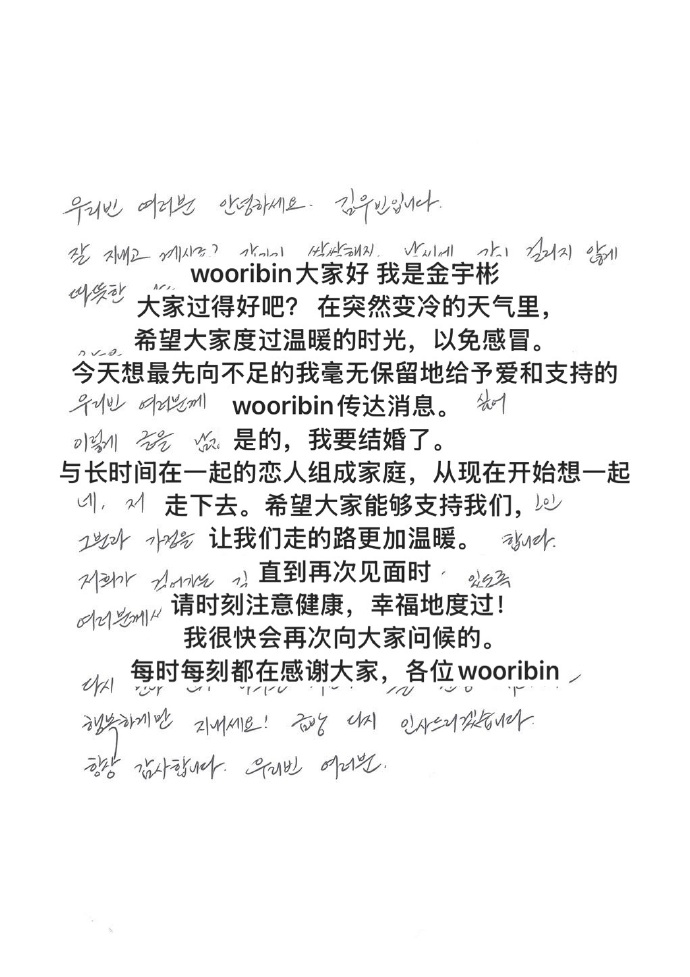 우리빈 여러분 안녕하세요. 김우빈입니다.
잘 지내고 계시죠? 갑자기 쌀쌀해진 날씨에 감기 걸리지 않게
wooribin大家好 我是金宇彬
따뜻한
大家过得好吧？ 在突然变冷的天气里，
希望大家度过温暖的时光，以免感冒。
今天想最先向不足的我毫无保留地给予爱和支持的
우리빈 여러분께 wooribin传达消息。 싶어
이렇게 글을 남 是的，我要结婚了。
与长时间在一起的恋人组成家庭，从现在开始想一起
네, 저 走下去。希望大家能够支持我们， 인
그분과 가정을 让我们走的路更加温暖。 합니다.
저희가 걸어가는 길 直到再次见面时 있도록
여러분께서 请时刻注意健康，幸福地度过！
我很快会再次向大家问候的。
每时每刻都在感谢大家，各位wooribin
다시
행복하게만 지내세요! 금방 다시 인사드리겠습니다.
항상 감사합니다. 우리빈 여러분.